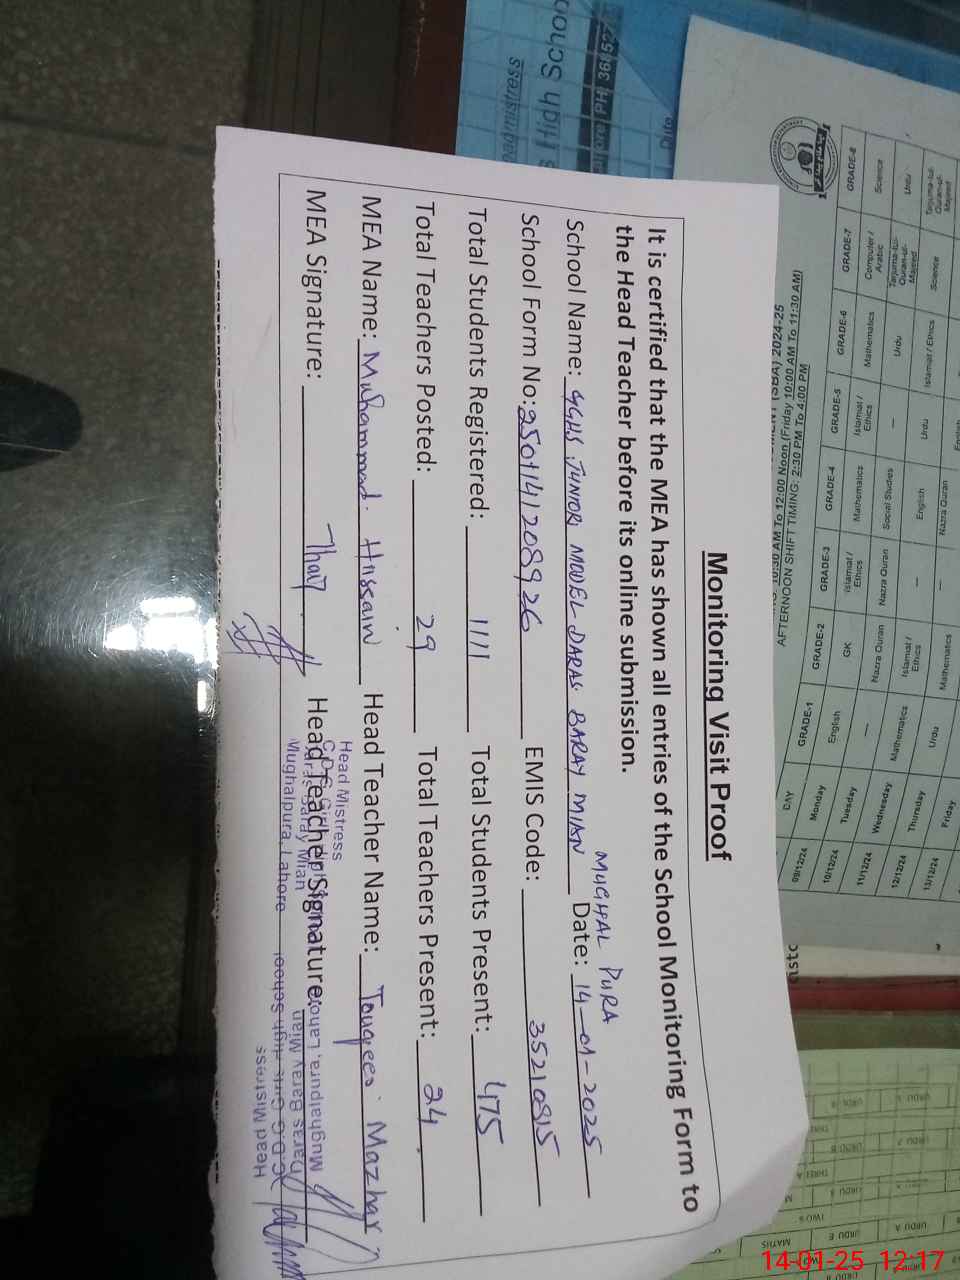 Monitoring Visit Proof
It is certified that the MEA has shown all entries of the School Monitoring Form to
the Head Teacher before its online submission.
School Name: GGHS JUNIOR MODEL DARAS BARAY MIAN Date: 14-01-2025
MUGHAL PURA
School Form No: EMIS Code: 35210815
Total Students Registered: 1111 Total Students Present: 475
Total Teachers Posted: 29 Total Teachers Present: 24
MEA Name: Muhammad Hussain Head Teacher Name: Touqeer Mazhar
MEA Signature: Head Teacher Signature:
Head Mistress
C.D.G. Girls High School
Daras Baray Mian
Mughalpura, Lahore
Head Mistress
C.D.G. Girls High School
Daras Baray Mian
Mughalpura, Lahore
(SBA) 2024-25
To 12:00 Noon (Friday 10:00 AM To 11:30 AM)
AFTERNOON SHIFT TIMING: 2:30 PM To 4:00 PM
DAY GRADE-1 GRADE-2 GRADE-3 GRADE-4 GRADE-5 GRADE-6 GRADE-7 GRADE-8
09/12/24 Monday English GK Islamiat / Ethics Mathematics Islamiat / Ethics Mathematics Computer / Arabic Science
10/12/24 Tuesday — Nazra Quran Nazra Quran Social Studies — Urdu Tarjuma-tul-Quran-ul-Majeed Urdu
11/12/24 Wednesday Mathematics Islamiat / Ethics — English Urdu Islamiat / Ethics Science Tarjuma-tul-Quran-ul-Majeed
12/12/24 Thursday Urdu Mathematics — Nazra Quran English
13/12/24 Friday
14-01-25 12:17